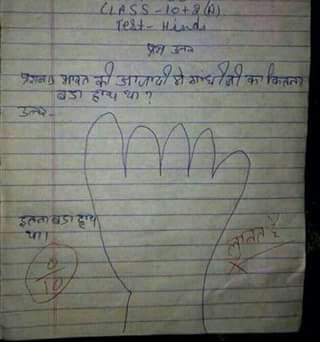 CLASS-10+2(A)
Test-Hindi
प्रश्न उत्तर
प्रश्न1) भारत की आजादी में गांधी जी का कितना
बडा हाथ था ?
उत्तर-
इतना बडा हाथ
था।
0/10
लानत है